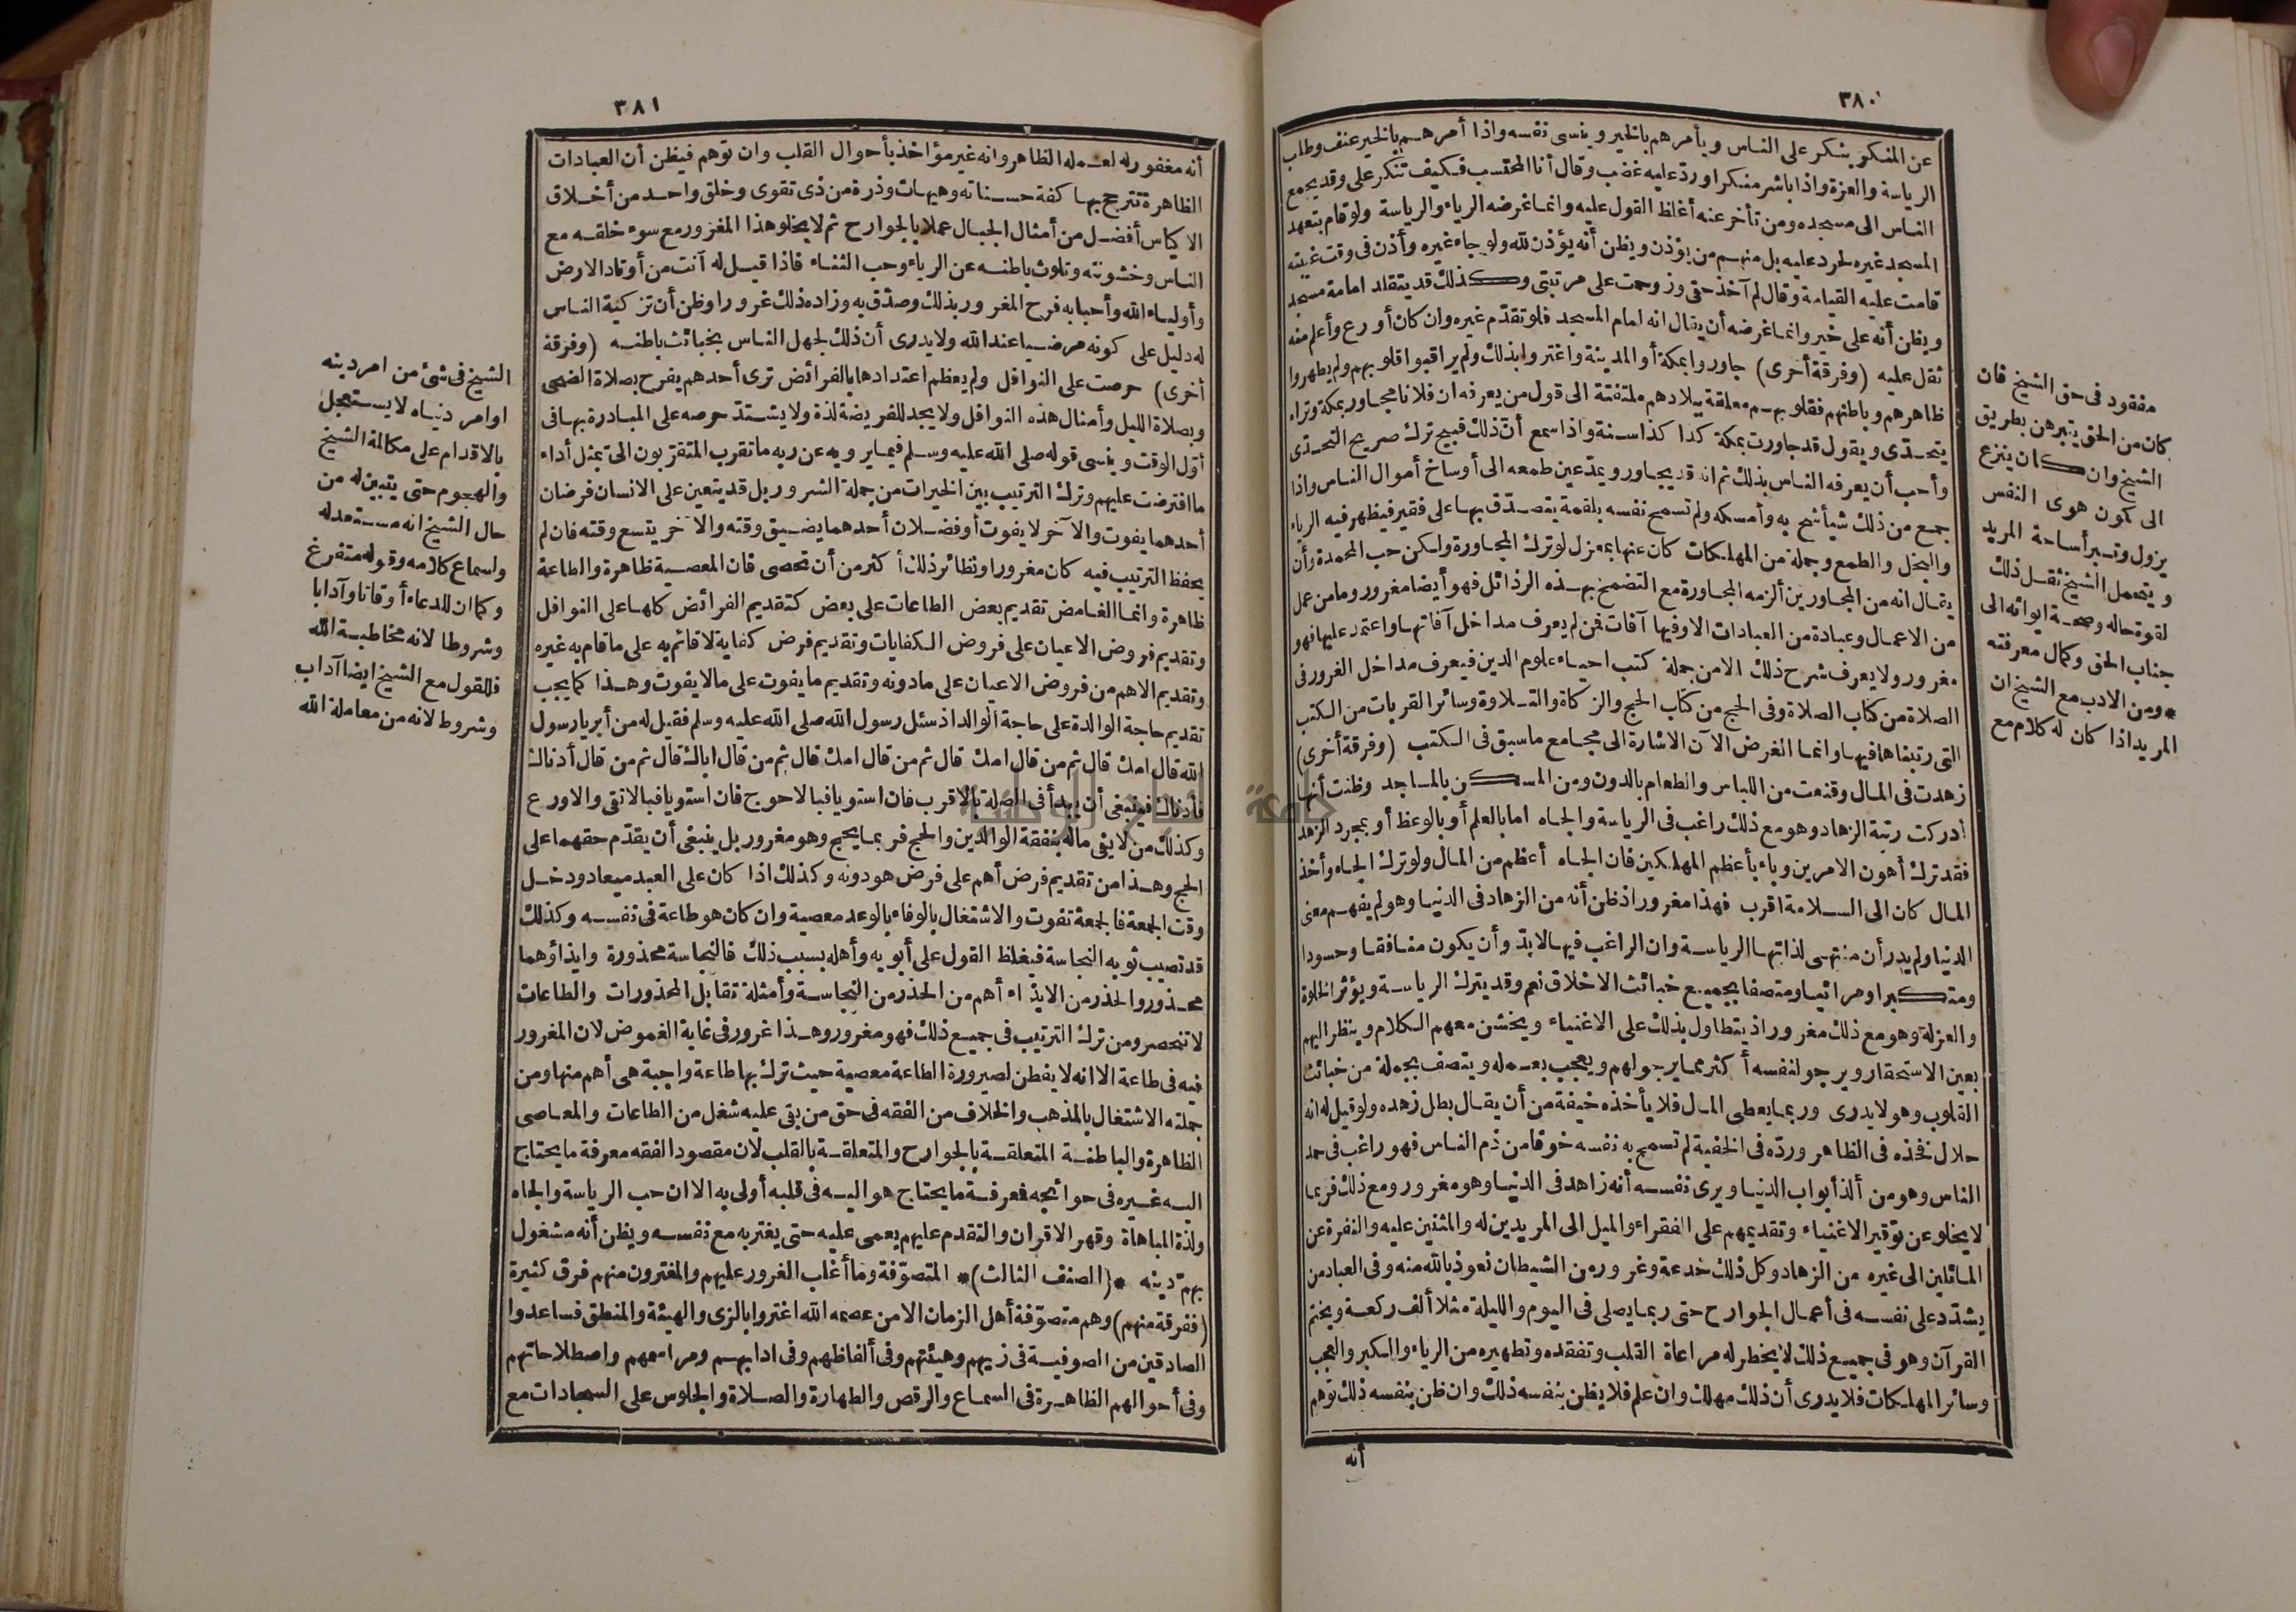 ٣٨٠
عن المنكر ينكر على الناس ويأمرهم بالخير وينسى نفسه واذا أمرهم بالخير عنف وطلب
الرياسة والعزة واذا باشر منكرا ورد عليه غضب وقال أنا المحتسب فكيف تنكر على وقد يجمع
الناس الى مسجده ومن تأخر عنه أغلظ القول عليه وانما غرضه الرياء والرياسة ولو قام بتعهد
المسجد غيره لحرد عليه بل منهم من يؤذن ويظن أنه يؤذن لله ولو جاء غيره وأذن فى وقت غيبته
قامت عليه القيامة وقال لم آخذ حقى وزوحمت على مرتبتى وكذلك قد يتقلد امامة مسجد
ويظن أنه على خير وانما غرضه أن يقال انه امام المسجد فلو تقدّم غيره وان كان أورع وأعلم منه
ثقل عليه (وفرقة أخرى) جاوروا بمكة أو المدينة واغتروا بذلك ولم يراقبوا قلوبهم ولم يطهروا
ظاهرهم وباطنهم فقلوبهم معلقة ببلادهم ملتفتة الى قول من يعرفه ان فلانا مجاور بمكة وتراه
يتحدّى ويقول قد جاورت بمكة كذا كذا سنة واذا سمع أنّ ذلك قبيح ترك صريح التحدّى
وأحب أن يعرفه الناس بذلك ثم انه قد يجاور ويمدّ عين طمعه الى أوساخ أموال الناس واذا
جمع من ذلك شيأ شح به وأمسكه ولم تسمح نفسه بلقمة يتصدّق بها على فقير فيظهر فيه الرياء
والبخل والطمع وجملة من المهلكات كان عنها بمعزل لو ترك المجاورة ولكن حب المحمدة وأن
يقال انه من المجاورين ألزمه المجاورة مع التضمخ بهذه الرذائل فهو أيضا مغرور وما من عمل
من الاعمال وعبادة من العبادات الا وفيها آفات فمن لم يعرف مداخل آفاتها واعتمد عليها فهو
مغرور ولا يعرف شرح ذلك الا من جملة كتب احياء علوم الدين فيعرف مداخل الغرور فى
الصلاة من كتاب الصلاة وفى الحج من كتاب الحج والزكاة والتلاوة وسائر القربات من الكتب
التى رتبناها فيها وانما الغرض الآن الاشارة الى مجامع ما سبق فى الكتب (وفرقة أخرى)
زهدت فى المال وقنعت من اللباس والطعام بالدون ومن المسكن بالمساجد وظنت أنها
أدركت رتبة الزهاد وهو مع ذلك راغب فى الرياسة والجاه اما بالعلم أو بالوعظ أو بمجرد الزهد
فقد ترك أهون الامرين وباء بأعظم المهلكين فان الجاه أعظم من المال ولو ترك الجاه وأخذ
المال كان الى السلامة اقرب فهذا مغرور اذ ظن أنه من الزهاد فى الدنيا وهو لم يفهم معنى
الدنيا ولم يدر أن منتهى لذاتها الرياسة وان الراغب فيها لابدّ وأن يكون منافقا وحسودا
ومتكبرا ومرائيا ومتصفا بجميع خبائث الاخلاق نعم وقد يترك الرياسة ويؤثر الخلوة
والعزلة وهو مع ذلك مغرور اذ يتطاول بذلك على الاغنياء ويخشن معهم الكلام وينظر اليهم
بعين الاستحقار ويرجو لنفسه أكثر مما يرجو لهم ويعجب بعمله ويتصف بجملة من خبائث
القلوب وهو لا يدرى وربما يعطى المال فلا يأخذه خيفة من أن يقال بطل زهده ولو قيل له انه
حلال فخذه فى الظاهر وردّه فى الخفية لم تسمح به نفسه خوفا من ذم الناس فهو راغب فى حمد
الناس وهو من ألذ أبواب الدنيا ويرى نفسه أنه زاهد فى الدنيا وهو مغرور ومع ذلك فربما
لا يخلو عن توقير الاغنياء وتقديمهم على الفقراء والميل الى المريدين له والمثنين عليه والنفرة عن
المائلين الى غيره من الزهاد وكل ذلك خدعة وغرور من الشيطان نعوذ بالله منه وفى العباد من
يشدّد على نفسه فى أعمال الجوارح حتى ربما يصلى فى اليوم والليلة مثلا ألف ركعة ويختم
القرآن وهو فى جميع ذلك لا يخطر له مراعاة القلب وتفقده وتطهيره من الرياء والكبر والعجب
وسائر المهلكات فلا يدرى أن ذلك مهلك وان علم فلا يظن بنفسه ذلك وان ظن بنفسه ذلك توهم
أنه
مفقود فى حق الشيخ فان
كان من الحق يتبرهن بطريق
الشيخ وان كان ينزع
الى كون هوى النفس
يزول وتبرأ ساحة المريد
ويتحمل الشيخ ثقل ذلك
لقوة حاله وصحة ايوائه الى
جناب الحق وكمال معرفته
* ومن الادب مع الشيخ ان
المريد اذا كان له كلام مع
٣٨١
أنه مغفور له لعمله الظاهر وانه غير مؤاخذ بأحوال القلب وان توهم فيظن أن العبادات
الظاهرة تترجح بها كفة حسناته وهيهات وذرة من ذى تقوى وخلق واحد من أخلاق
الاكياس أفضل من أمثال الجبال عملا بالجوارح ثم لا يخلو هذا المغرور مع سوء خلقه مع
الناس وخشونته وتلوث باطنه عن الرياء وحب الثناء فاذا قيل له أنت من أوتاد الارض
وأولياء الله وأحبابه فرح المغرور بذلك وصدّق به وزاده ذلك غرورا وظن أن تزكية الناس
له دليل على كونه مرضيا عند الله ولا يدرى أن ذلك لجهل الناس بخبائث باطنه (وفرقة
أخرى) حرصت على النوافل ولم يعظم اعتدادها بالفرائض ترى أحدهم يفرح بصلاة الضحى
وبصلاة الليل وأمثال هذه النوافل ولا يجد للفريضة لذة ولا يشتدّ حرصه على المبادرة بها فى
أوّل الوقت وينسى قوله صلى الله عليه وسلم فيما يرويه عن ربه ما تقرب المتقربون الى بمثل أداء
ما افترضت عليهم وترك الترتيب بين الخيرات من جملة الشرور بل قد يتعين على الانسان فرضان
أحدهما يفوت والآخر لا يفوت أو فضلان أحدهما يضيق وقته والآخر يتسع وقته فان لم
يحفظ الترتيب فيه كان مغرورا ونظائر ذلك أكثر من أن تحصى فان المعصية ظاهرة والطاعة
ظاهرة وانما الغامض تقديم بعض الطاعات على بعض كتقديم الفرائض كلها على النوافل
وتقديم فروض الاعيان على فروض الكفايات وتقديم فرض كفاية لا قائم به على ما قام به غيره
وتقديم الاهم من فروض الاعيان على ما دونه وتقديم ما يفوت على ما لا يفوت وهذا كما يجب
تقديم حاجة الوالدة على حاجة الوالد اذ سئل رسول الله صلى الله عليه وسلم فقيل له من أبر يا رسول
الله قال امك قال ثم من قال امك قال ثم من قال امك قال ثم من قال اباك قال ثم من قال أدناك
فأدناك فينبغى أن يبدأ فى الصلة بالاقرب فان استويا فبالاحوج فان استويا فبالاتقى والاورع
وكذلك من لا يفى ماله بنفقة الوالدين والحج فربما يحج وهو مغرور بل ينبغى أن يقدّم حقهما على
الحج وهذا من تقديم فرض أهم على فرض هو دونه وكذلك اذا كان على العبد ميعاد ودخل
وقت الجمعة فالجمعة تفوت والاشتغال بالوفاء بالوعد معصية وان كان هو طاعة فى نفسه وكذلك
قد تصيب ثوبه النجاسة فيغلظ القول على أبويه وأهله بسبب ذلك فالنجاسة محذورة وايذاؤهما
محذور والحذر من الايذاء أهم من الحذر من النجاسة وأمثلة تقابل المحذورات والطاعات
لا تنحصر ومن ترك الترتيب فى جميع ذلك فهو مغرور وهذا غرور فى غاية الغموض لان المغرور
فيه فى طاعة الا انه لا يفطن لصيرورة الطاعة معصية حيث ترك بها طاعة واجبة هى أهم منها ومن
جملته الاشتغال بالمذهب والخلاف من الفقه فى حق من بقى عليه شغل من الطاعات والمعاصى
الظاهرة والباطنة المتعلقة بالجوارح والمتعلقة بالقلب لان مقصود الفقه معرفة ما يحتاج
اليه غيره فى حوائجه فمعرفة ما يحتاج هو اليه فى قلبه أولى به الا ان حب الرياسة والجاه
ولذة المباهاة وقهر الاقران والتقدم عليهم يعمى عليه حتى يغتر به مع نفسه ويظن أنه مشغول
بهمّ دينه * (الصنف الثالث) * المتصوّفة وما أغلب الغرور عليهم والمغترون منهم فرق كثيرة
(ففرقة منهم) وهم متصوّفة أهل الزمان الا من عصمه الله اغتروا بالزى والهيئة والمنطق فساعدوا
الصادقين من الصوفية فى زيهم وهيئتهم وفى ألفاظهم وفى ادابهم ومراسمهم واصطلاحاتهم
وفى أحوالهم الظاهرة فى السماع والرقص والطهارة والصلاة والجلوس على السجادات مع
الشيخ فى شئ من امر دينه
او امر دنياه لا يستعجل
بالاقدام على مكالمة الشيخ
والهجوم حتى يتبين له من
حال الشيخ انه مستعد له
واسماع كلامه وقوله متفرغ
وكما ان للدعاء أوقاتا وآدابا
وشروطا لانه مخاطبة الله
فللقول مع الشيخ ايضا آداب
وشروط لانه من معاملة الله